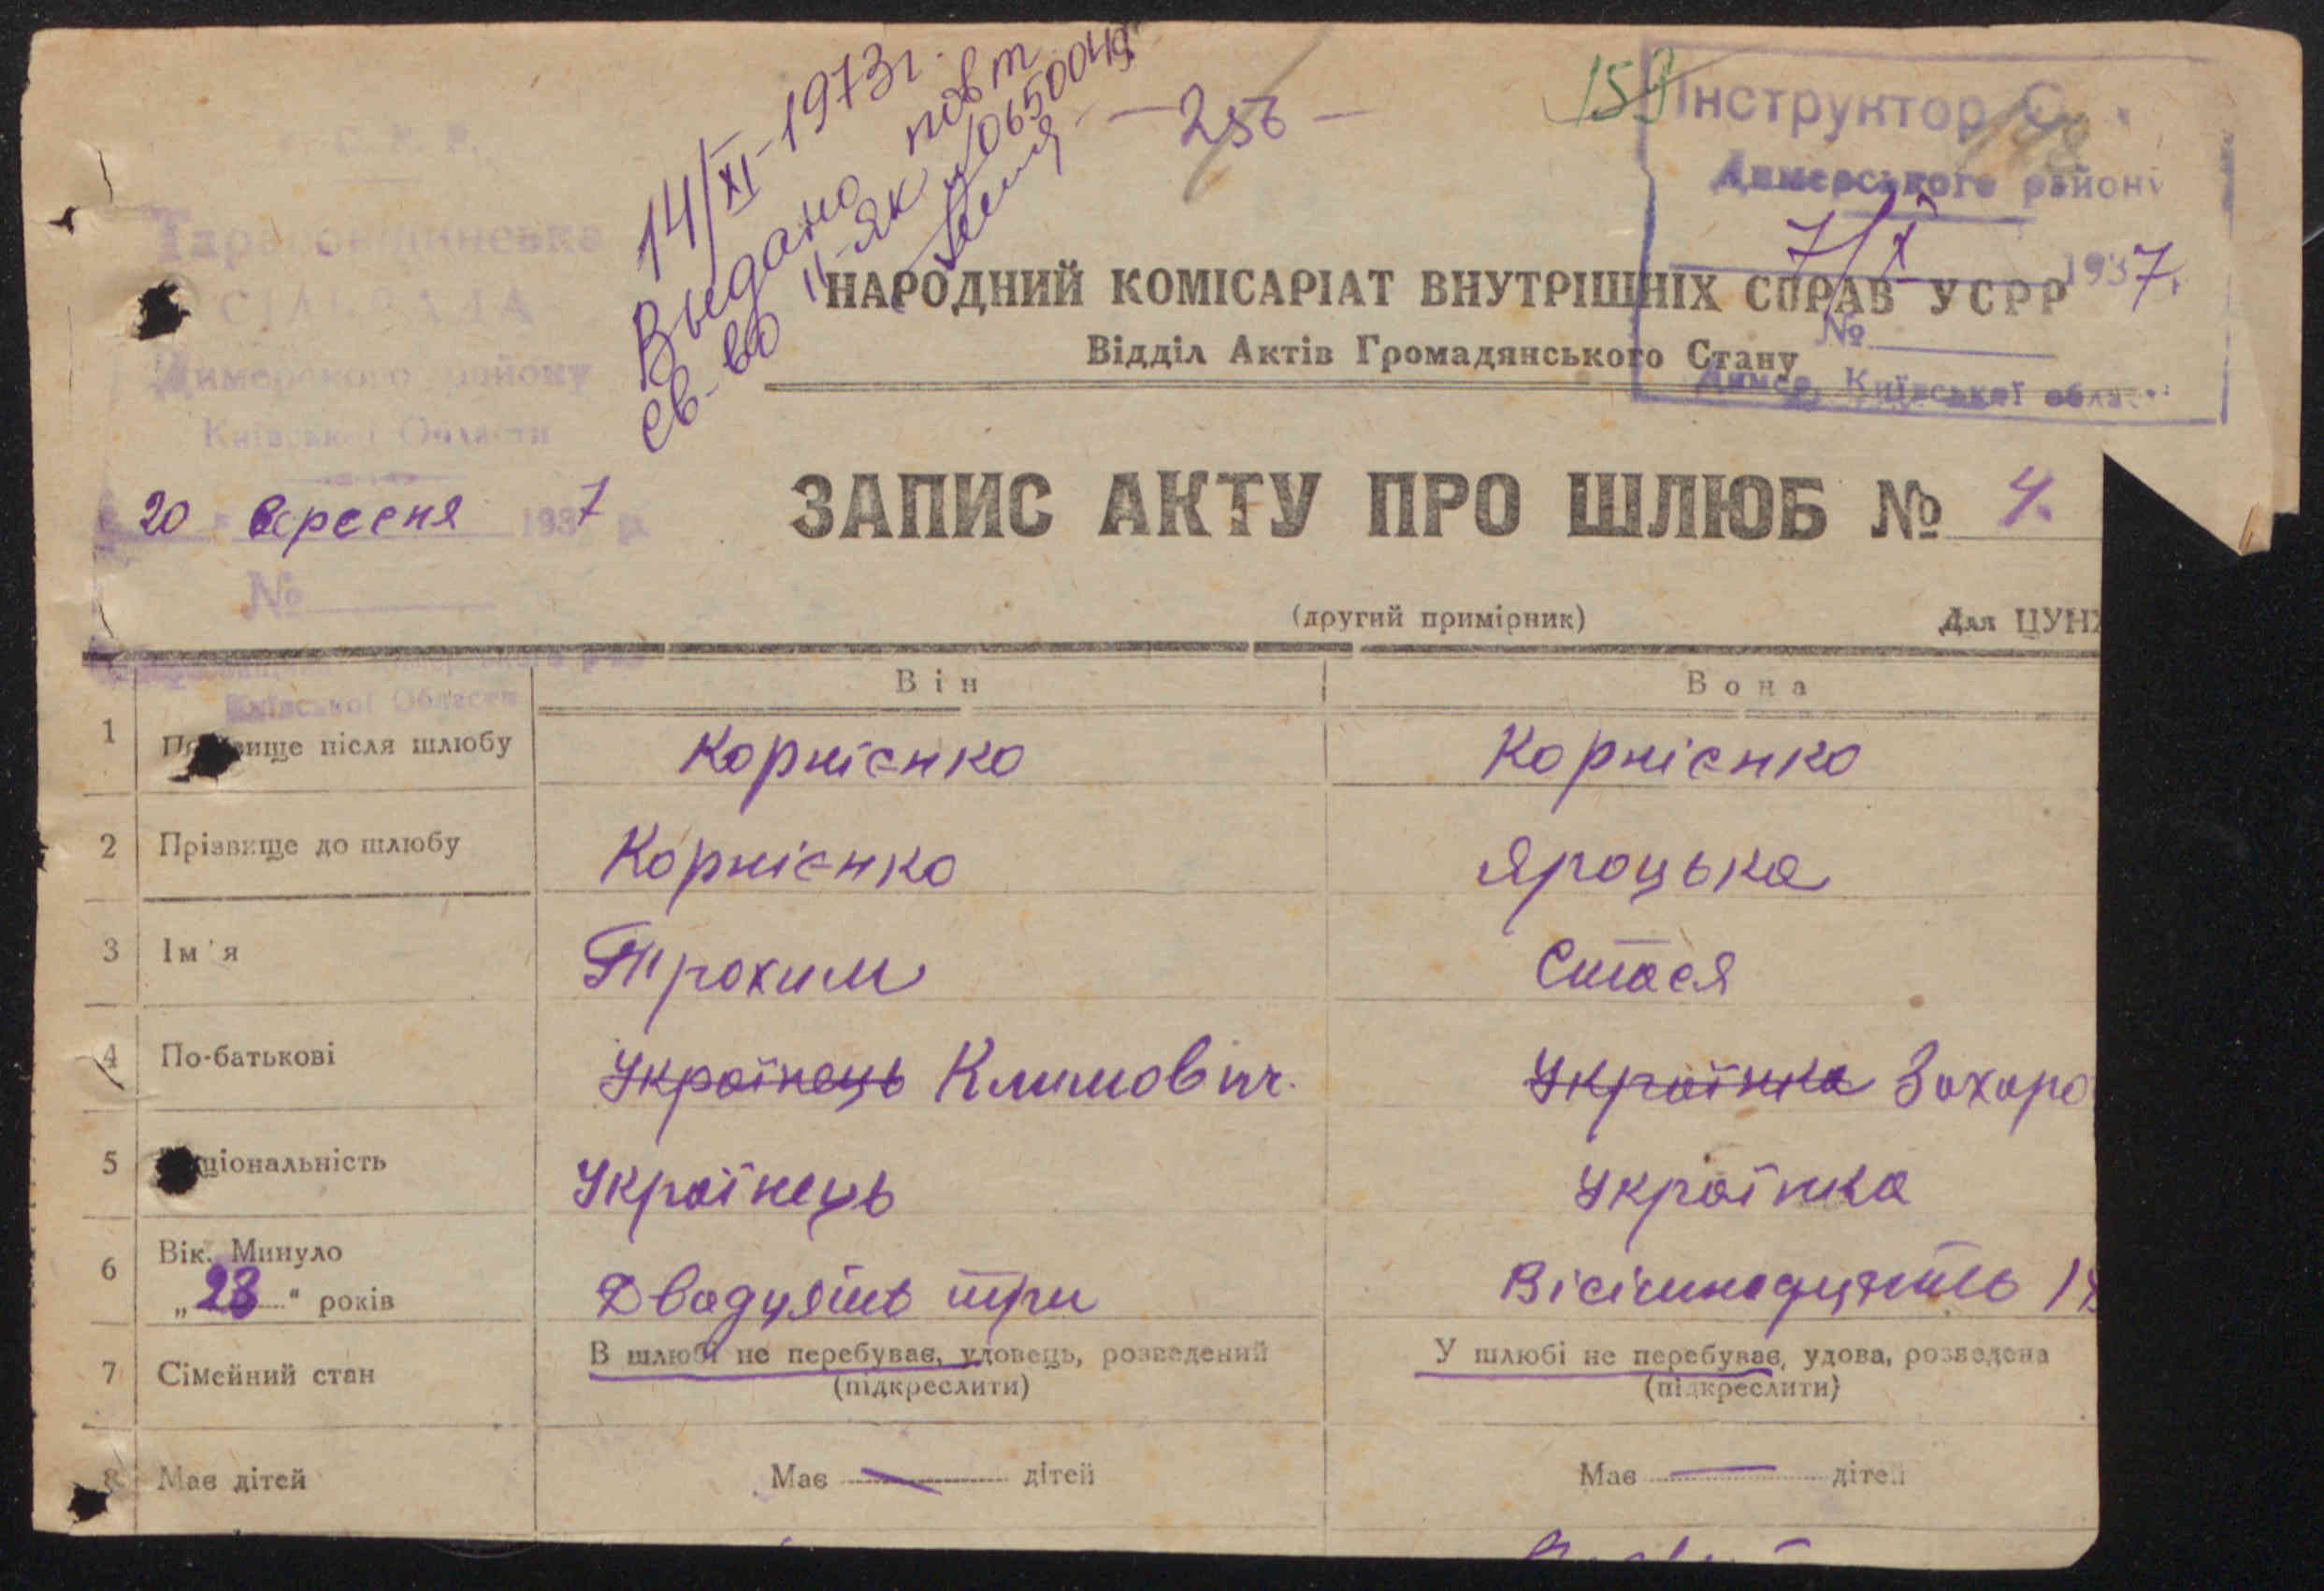 14/XI-1973г.
Выдано повт
св-во II-ЯК №0650049
-256-
159
Інструктор
Димерського району
7/X 1937.
№
Димер, Київської област
С. Р. Р.
СІЛЬРАДА
Димерського району
Київської Области
20 вересня 1937 р.
№
Київської Области
НАРОДНИЙ КОМІСАРІАТ ВНУТРІШНІХ СПРАВ УСРР
Відділ Актів Громадянського Стану
ЗАПИС АКТУ ПРО ШЛЮБ № 4.
(другий примірник) Для ЦУНХ
Він Вона
1 Прізвище після шлюбу Корнієнко Корнієнко
2 Прізвище до шлюбу Корнієнко Яроцька
3 Ім'я Трохим Стася
4 По-батькові Українець Климович. Українка Захаро
5 Національність Українець Українка
6 Вік. Минуло
„23“ років Двадцять три Вісімнадцять 18
7 Сімейний стан В шлюбі не перебуває, удовець, розведений У шлюбі не перебуває, удова, розведена
(підкреслити) (підкреслити)
8 Має дітей Має — дітей Має — дітей